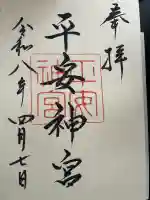 奉拝
平安神宮
令和八年 四月七日